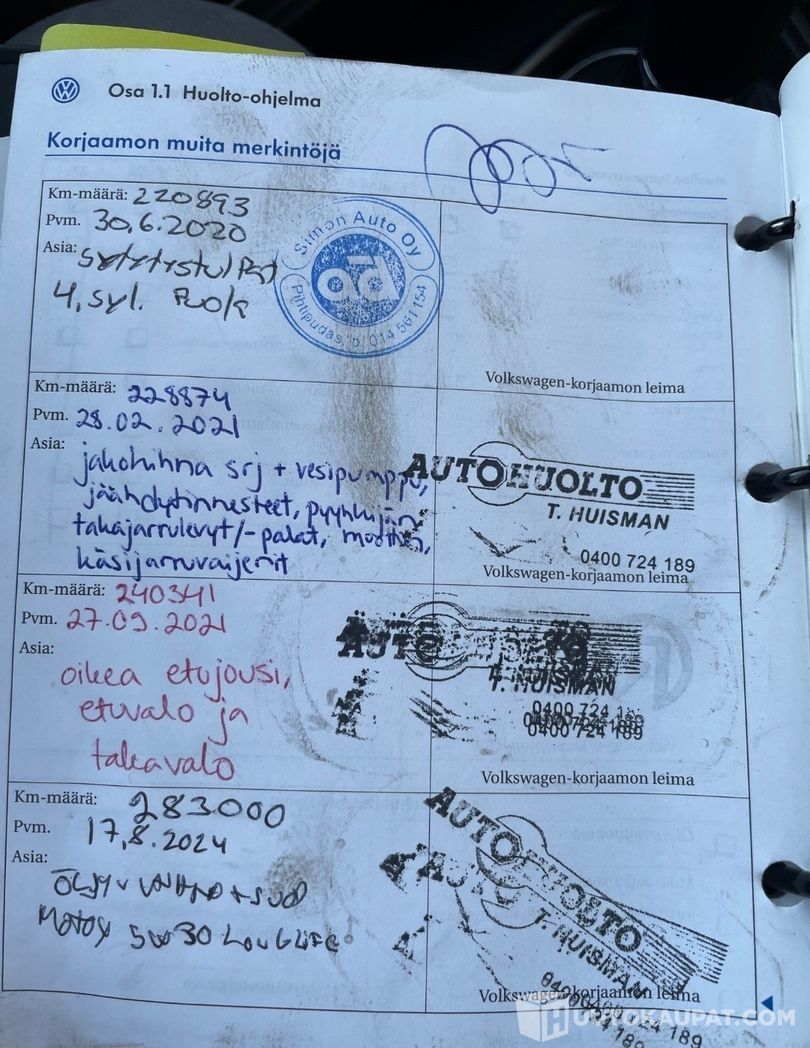 Osa 1.1 Huolto-ohjelma
Korjaamon muita merkintöjä
Km-määrä: 220893
Pvm. 30.6.2020
Asia:
4. syl.
Simon Auto Oy
ad
014 561154
Volkswagen-korjaamon leima
Km-määrä: 228874
Pvm. 28.02.2021
Asia:
jakohihna srj + vesipumppu,
jäähdytinnesteet,
takajarrulevyt/-palat,
käsijarruvaijerit
AUTOHUOLTO
T. HUISMAN
0400 724 189
Volkswagen-korjaamon leima
Km-määrä: 240341
Pvm. 27.09.2021
Asia:
oikea etujousi,
etuvalo ja
takavalo
T. HUISMAN
0400 724 189
Volkswagen-korjaamon leima
Km-määrä: 283000
Pvm. 17.8.2024
Asia:
5w30 LongLife
AUTOHUOLTO
T. HUISMAN
724 189
Volkswagen-korjaamon leima
HUUTOKAUPAT.COM